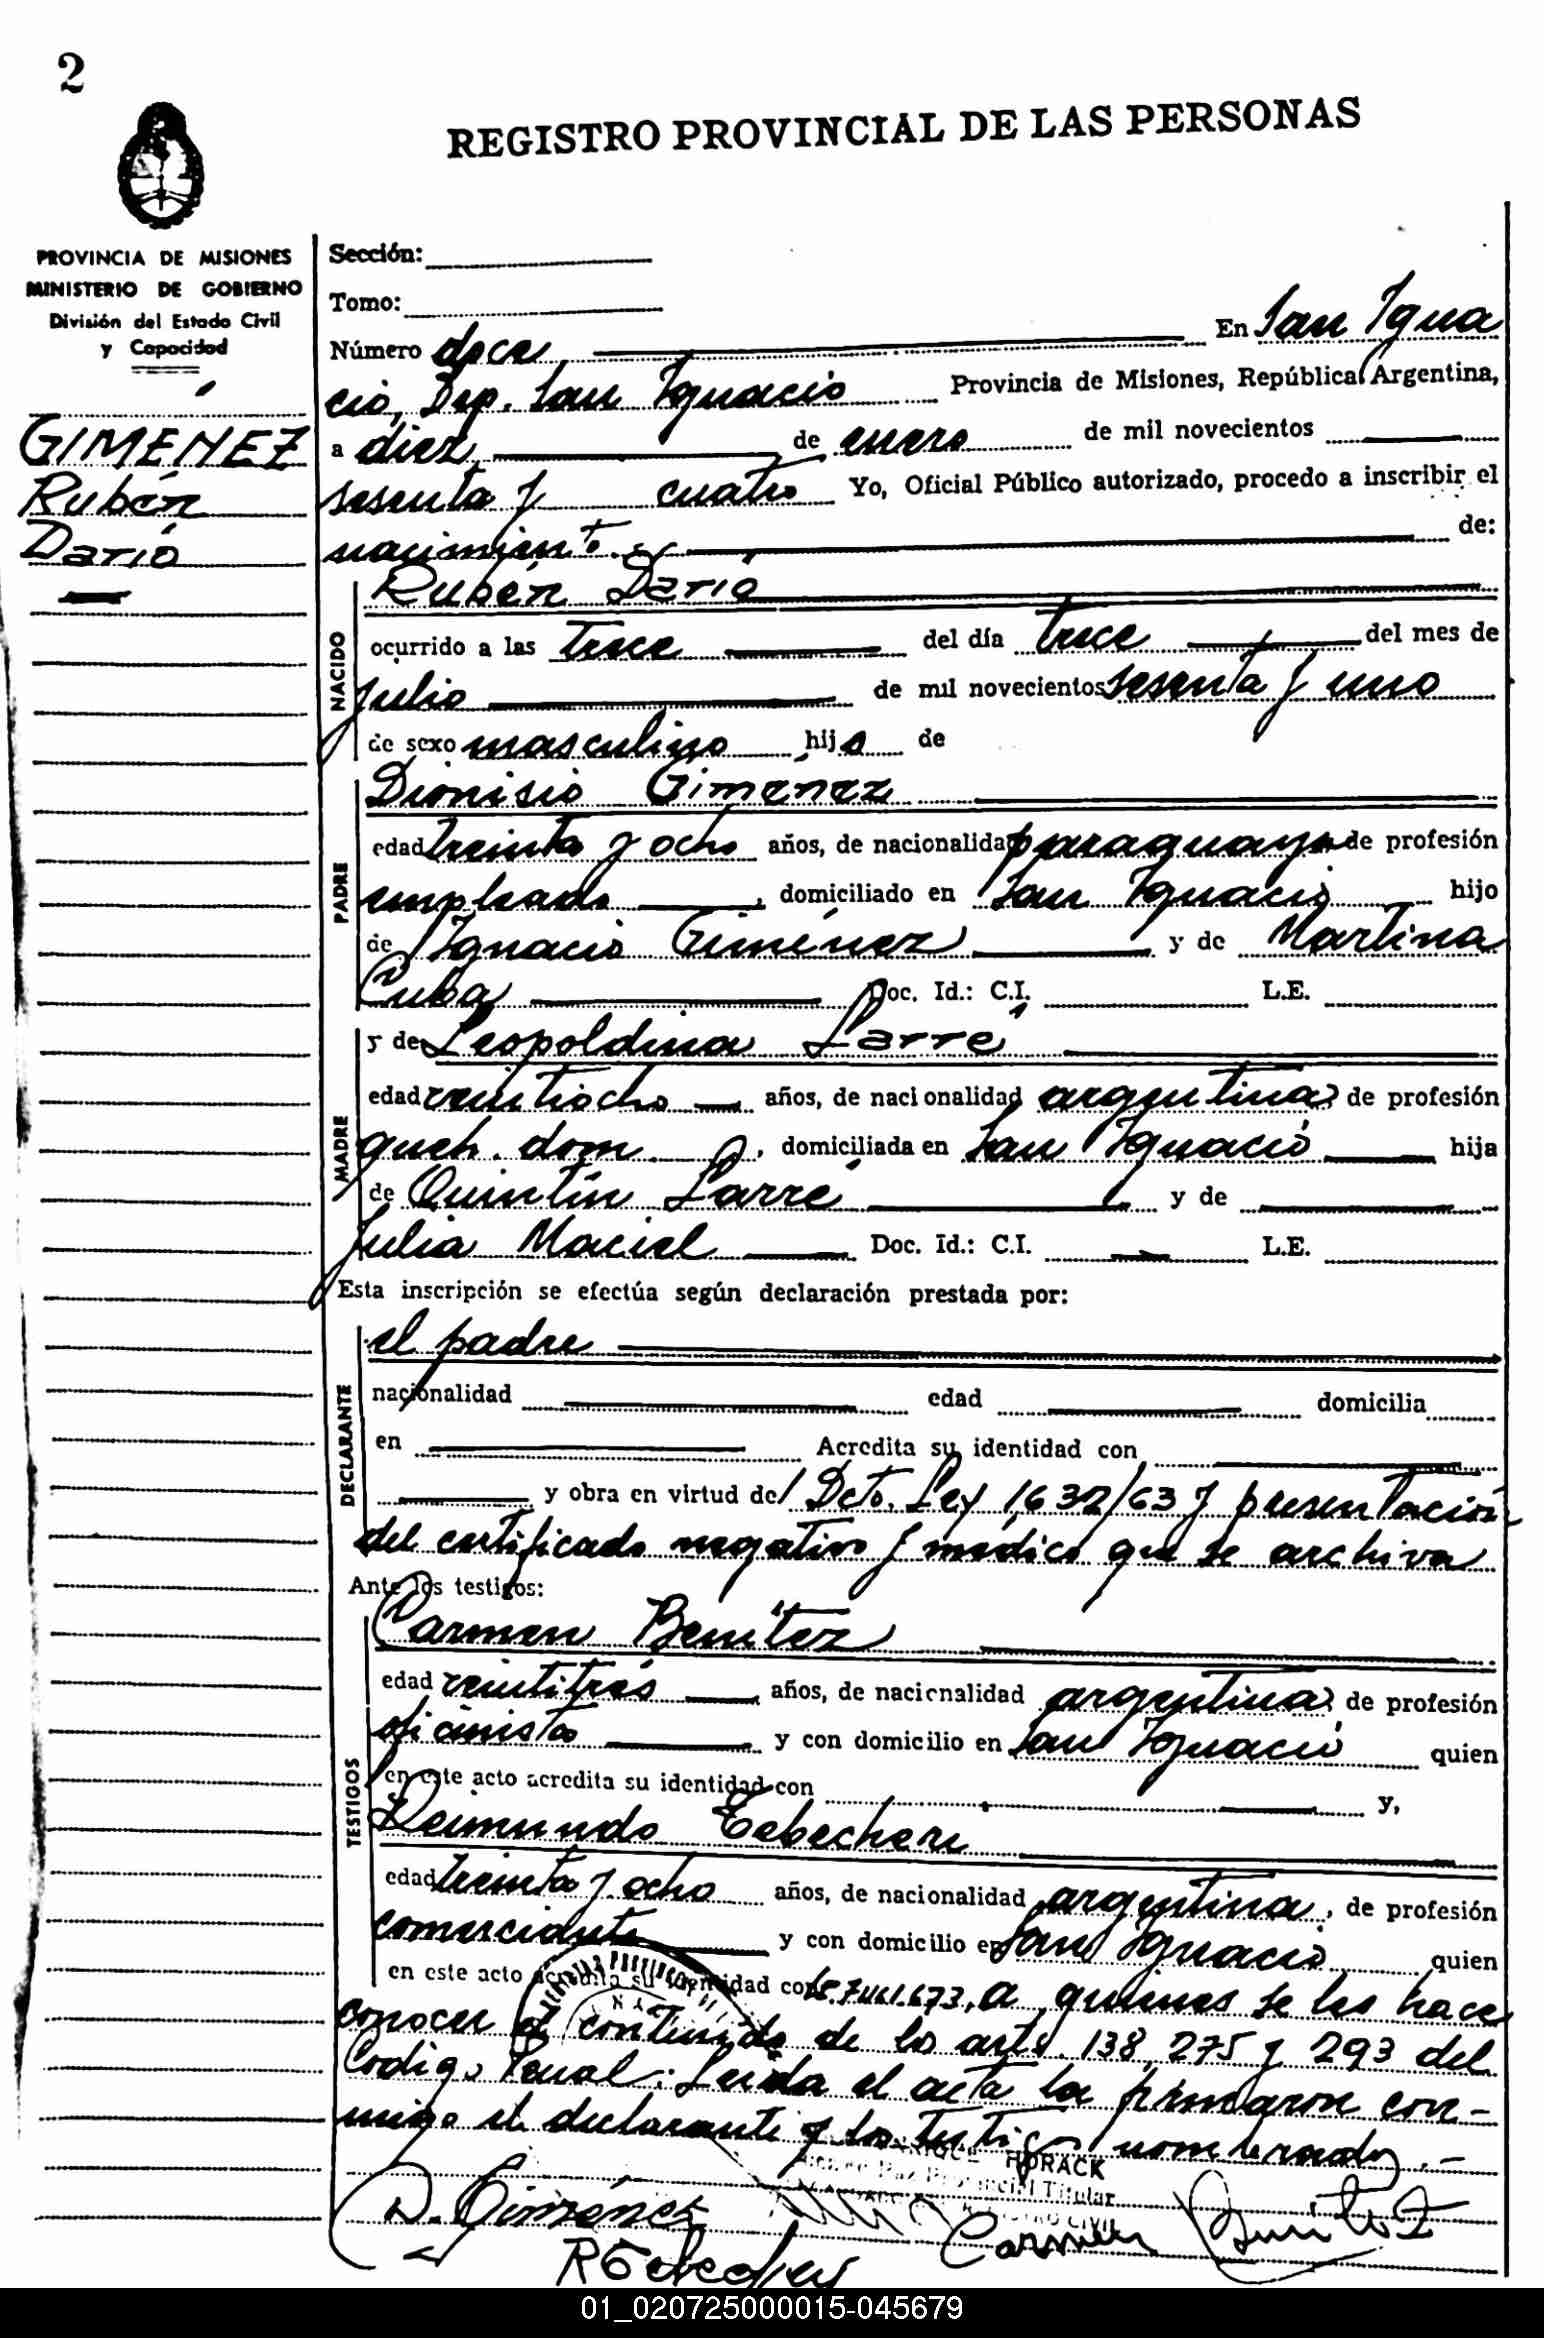 2
REGISTRO PROVINCIAL DE LAS PERSONAS
PROVINCIA DE MISIONES
MINISTERIO DE GOBIERNO
División del Estado Civil
y Capacidad
GIMENEZ
Rubén
Darío
Sección:
Tomo:
Número doce En San Igna
cio, Dep. San Ignacio Provincia de Misiones, República Argentina,
a diez de enero de mil novecientos
sesenta y cuatro Yo, Oficial Público autorizado, procedo a inscribir el
nacimiento de:
NACIDO
Rubén Darío
ocurrido a las trece del día trece del mes de
julio de mil novecientos sesenta y uno
de sexo masculino hijo de
PADRE
Dionisio Giménez
edad treinta y ocho años, de nacionalidad paraguaya de profesión
empleado, domiciliado en San Ignacio hijo
de Ignacio Giménez y de Martina
Cuba Doc. Id.: C.I. L.E.
MADRE
y de Leopoldina Larré
edad veintiocho años, de nacionalidad argentina, de profesión
queh. dom., domiciliada en San Ignacio hija
de Quintín Larré y de
Julia Maciel Doc. Id.: C.I. L.E.
Esta inscripción se efectúa según declaración prestada por:
DECLARANTE
el padre
nacionalidad edad domicilia
en Acredita su identidad con
y obra en virtud de Dcto. Ley 1632/63 y presentación
del certificado negativo y médico que se archiva
Ante los testigos:
TESTIGOS
Carmen Benítez
edad veintitrés años, de nacionalidad argentina, de profesión
oficinista y con domicilio en San Ignacio quien
en este acto acredita su identidad con y,
Reimundo
edad treinta y ocho años, de nacionalidad argentina, de profesión
comerciante y con domicilio en San Ignacio quien
en este acto acredita su identidad con a quienes se les hace
conocer el contenido de los arts. 138, 275 y 293 del
Codigo Penal: Leida el acta la firmaron con-
migo el declarante y los testigos nombrados.-
HORACK
Titular
D. Giménez Carmen Benitez
01_020725000015-045679